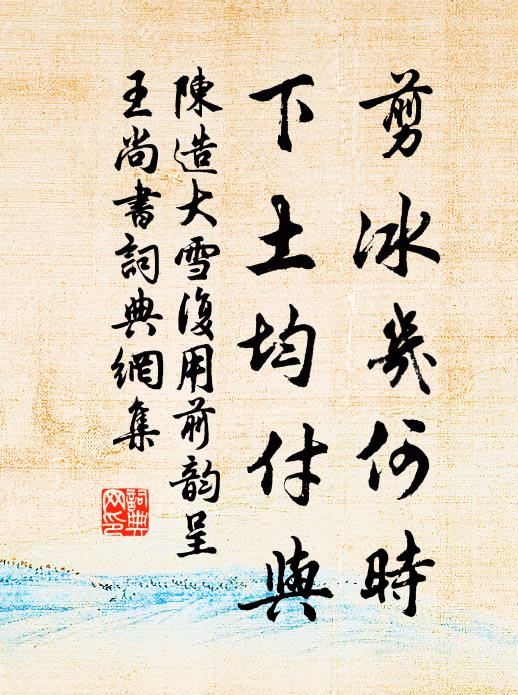 剪冰幾何時
下土均付與
陳造大雪復用前韵呈
王尚書詞典網集
詞典
网印